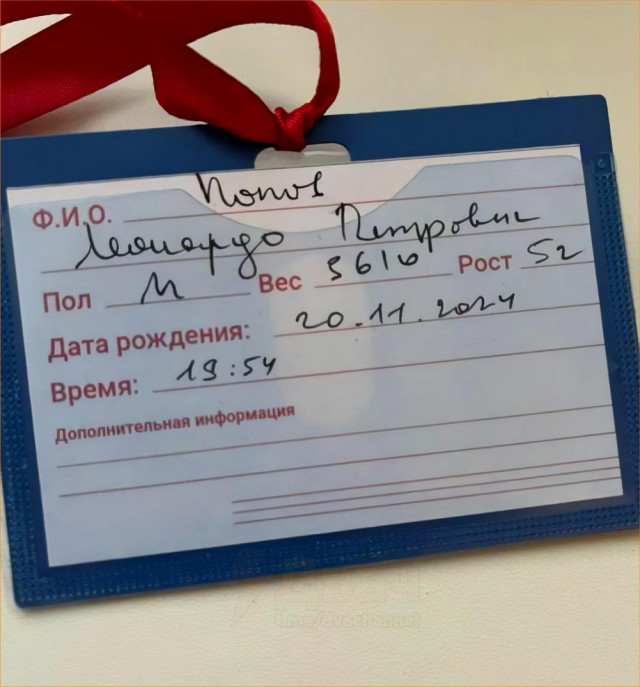 Ф.И.О. Попов
Леонардо Петрович
Пол М Вес 3610 Рост 52
Дата рождения: 20.11.2024
Время: 19:54
Дополнительная информация